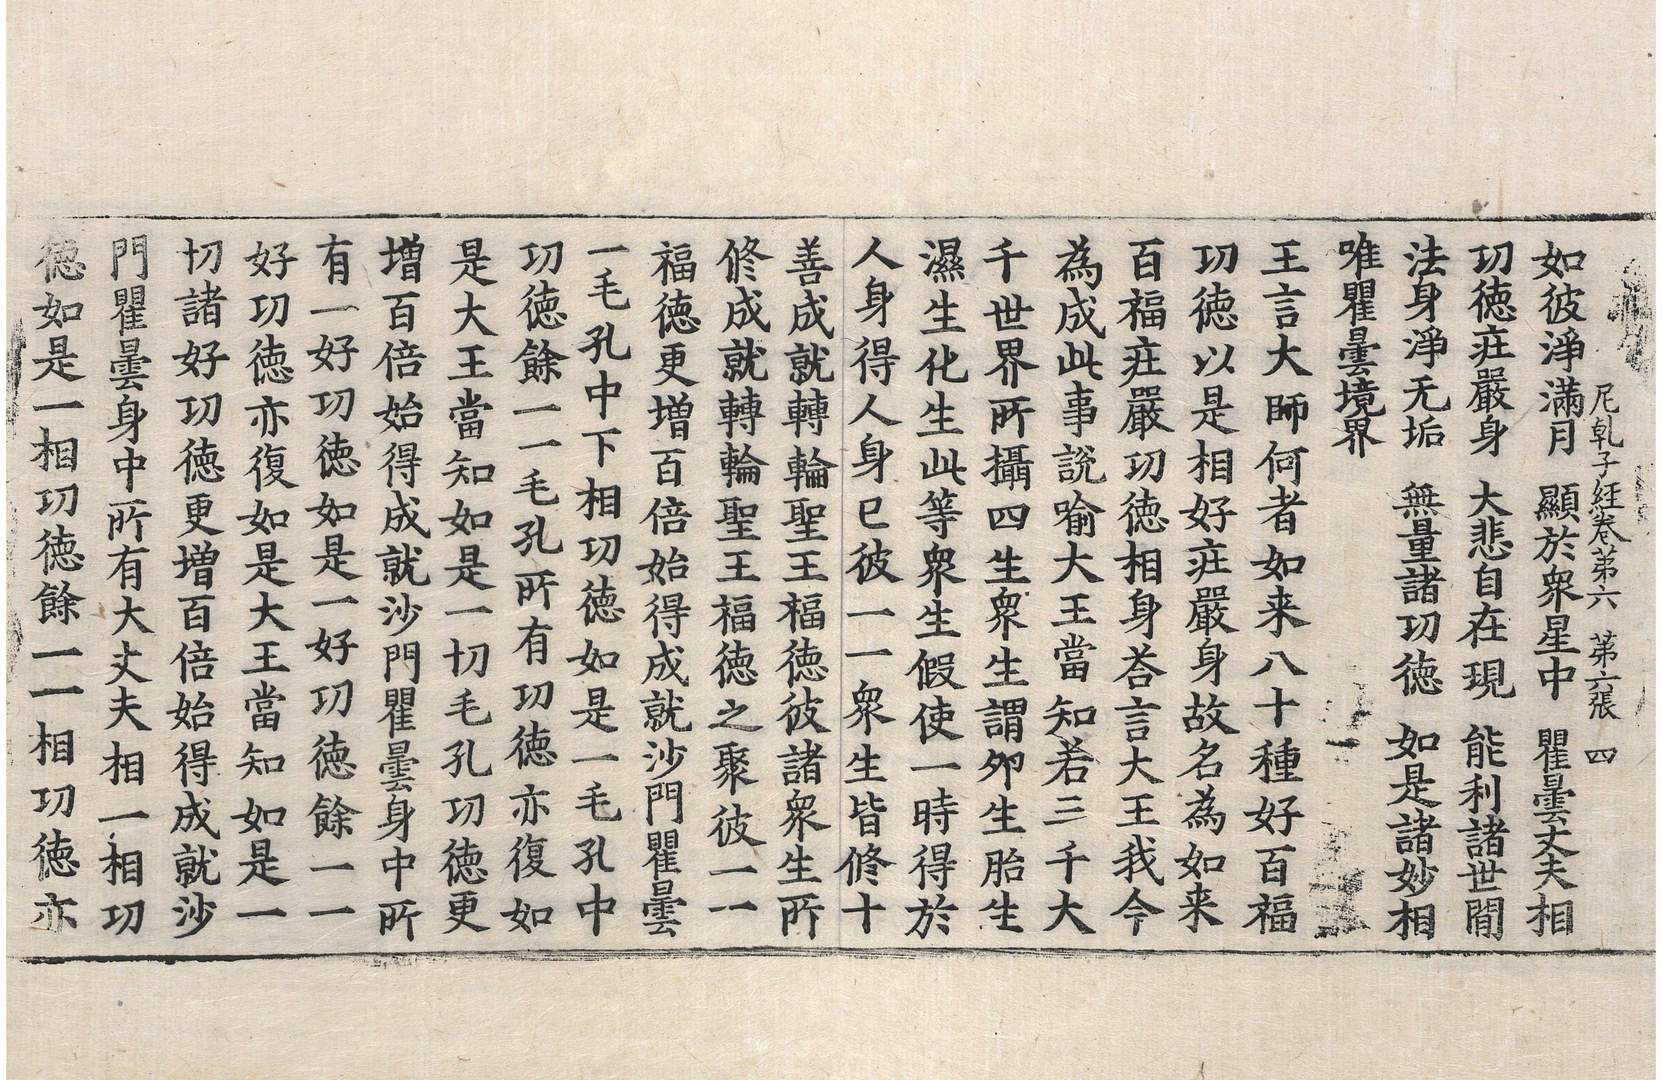 尼乹子経卷苐六 苐六張 四
如彼淨滿月 顯於衆星中 瞿曇丈夫相
功徳莊嚴身 大悲自在現 能利諸世間
法身淨无垢 無量諸功徳 如是諸妙相
唯瞿曇境界
王言大師何者如来八十種好百福
功徳以是相好莊嚴身故名為如来
百福莊嚴功徳相身荅言大王我今
為成此事説喻大王當知若三千大
千世界所攝四生衆生謂卵生胎生
濕生化生此等衆生假使一時得於
人身得人身已彼一一衆生皆修十
善成就轉輪聖王福徳彼諸衆生所
修成就轉輪聖王福徳之聚彼一一
福徳更增百倍始得成就沙門瞿曇
一毛孔中下相功徳如是一毛孔中
功徳餘一一毛孔所有功徳亦復如
是大王當知如是一切毛孔功徳更
增百倍始得成就沙門瞿曇身中所
有一好功徳如是一好功徳餘一一
好功徳亦復如是大王當知如是一
切諸好功徳更增百倍始得成就沙
門瞿曇身中所有大丈夫相一相功
徳如是一相功徳餘一一相功徳亦